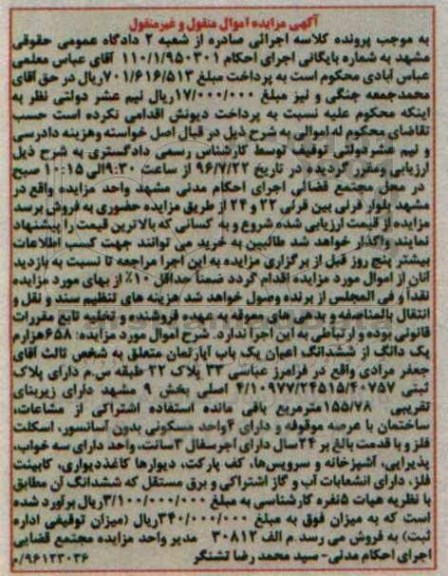 آگهی مزایده اموال منقول و غیرمنقول
به موجب پرونده کلاسه اجرائی صادره از شعبه ۲ دادگاه عمومی حقوقی
مشهد به شماره بایگانی اجرای احکام ۱۱۰/۱/۹۵۰۳۰۱ آقای عباس معلمی
عباس آبادی محکوم است به پرداخت مبلغ ۷۰۱/۶۱۶/۵۱۳ریال در حق آقای
محمدجمعه جنگی و نیز مبلغ ۱۷/۰۰۰/۰۰۰ریال نیم عشر دولتی نظر به
اینکه محکوم علیه نسبت به پرداخت دیونش اقدامی نکرده است حسب
تقاضای محکوم له اموالی به شرح ذیل در قبال اصل خواسته وهزینه دادرسی
و نیم عشردولتی توقیف توسط کارشناس رسمی دادگستری به شرح ذیل
ارزیابی ومقرر گردیده در تاریخ ۹۶/۷/۲۲ از ساعت ۹:۳۰الی ۱۰:۱۵ صبح
در محل مجتمع قضائی اجرای احکام مدنی مشهد واحد مزایده واقع در
مشهد بلوار قرنی بین قرنی ۲۲ و ۲۴ از طریق مزایده حضوری به فروش برسد
مزایده از قیمت ارزیابی شده شروع و به کسانی که بالاترین قیمت را پیشنهاد
نمایند واگذار خواهد شد طالبین به خرید می توانند جهت کسب اطلاعات
بیشتر پنج روز قبل از برگزاری مزایده به این اجرا مراجعه تا نسبت به بازدید
آنان از اموال مورد مزایده اقدام گردد ضمناً حداقل ۱۰٪ از بهای مورد مزایده
نقداً و فی المجلس از برنده وصول خواهد شد هزینه های تنظیم سند و نقل و
انتقال بالمناصفه و بدهی های معوقه به عهده فروشنده و تخلیه تابع مقررات
قانونی بوده و ارتباطی به این اجرا ندارد. شرح اموال مورد مزایده: ۶۵۸هزارم
یک دانگ از ششدانگ اعیان یک باب آپارتمان متعلق به شخص ثالث آقای
جعفر مرادی واقع در فرامرز عباسی ۳۳ پلاک ۲۲ طبقه س.م دارای پلاک
ثبتی ۴/۱۰۹۷۷/۲۴۵۱۵/۴۰۷۵۷ اصلی بخش ۹ مشهد دارای زیربنای
تقریبی ۱۵۵/۷۸مترمربع باقی مانده استفاده اشتراکی از مشاعات،
ساختمان با عرصه موقوفه و دارای ۴واحد مسکونی بدون آسانسور، اسکلت
فلز و با قدمت بالغ بر ۲۴سال دارای آجرسفال ۳سانت، واحد دارای سه خواب،
پذیرایی، آشپزخانه و سرویس‌ها، کف پارکت، دیوارها کاغذدیواری، کابینت
فلز، دارای انشعابات آب و گاز اشتراکی و برق مستقل که ششدانگ آن مطابق
با نظریه هیات ۵نفره کارشناسی به مبلغ ۳/۱۰۰/۰۰۰/۰۰۰ریال برآورد شده
است که به میزان فوق به مبلغ ۳۴۰/۰۰۰/۰۰۰ریال (میزان توقیفی اداره
ثبت) به فروش می رسد.م الف ۳۰۸۱۲ مدیر واحد مزایده مجتمع قضایی
اجرای احکام مدنی- سید محمد رضا تشنگر ۹۶۱۲۳۰۳۶/م